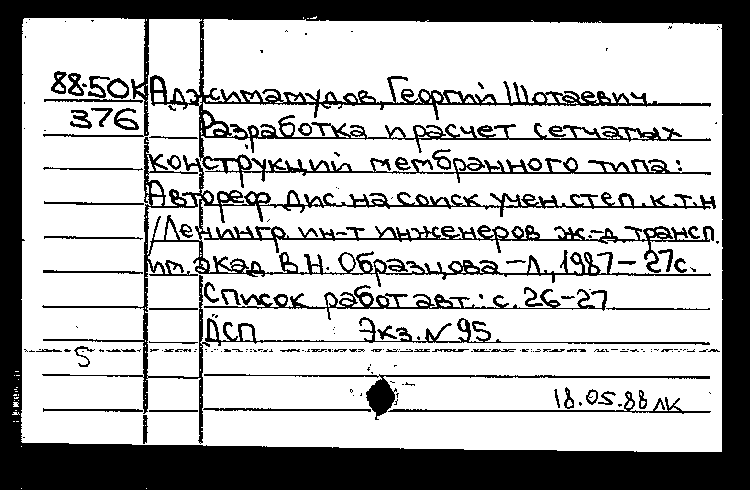 88-50К Аджимамудов, Георгий Шотаевич.
376 Разработка и расчет сетчатых
конструкций мембранного типа:
Автореф. дис. на соиск. учен. степ. к.т.н
/Ленингр. ин-т инженеров ж.-д. трансп.
им. акад. В.Н. Образцова. – Л., 1987 – 27с.
Список работ авт.: с. 26-27
ДСП Экз. № 95.
S
18.05.88 лк